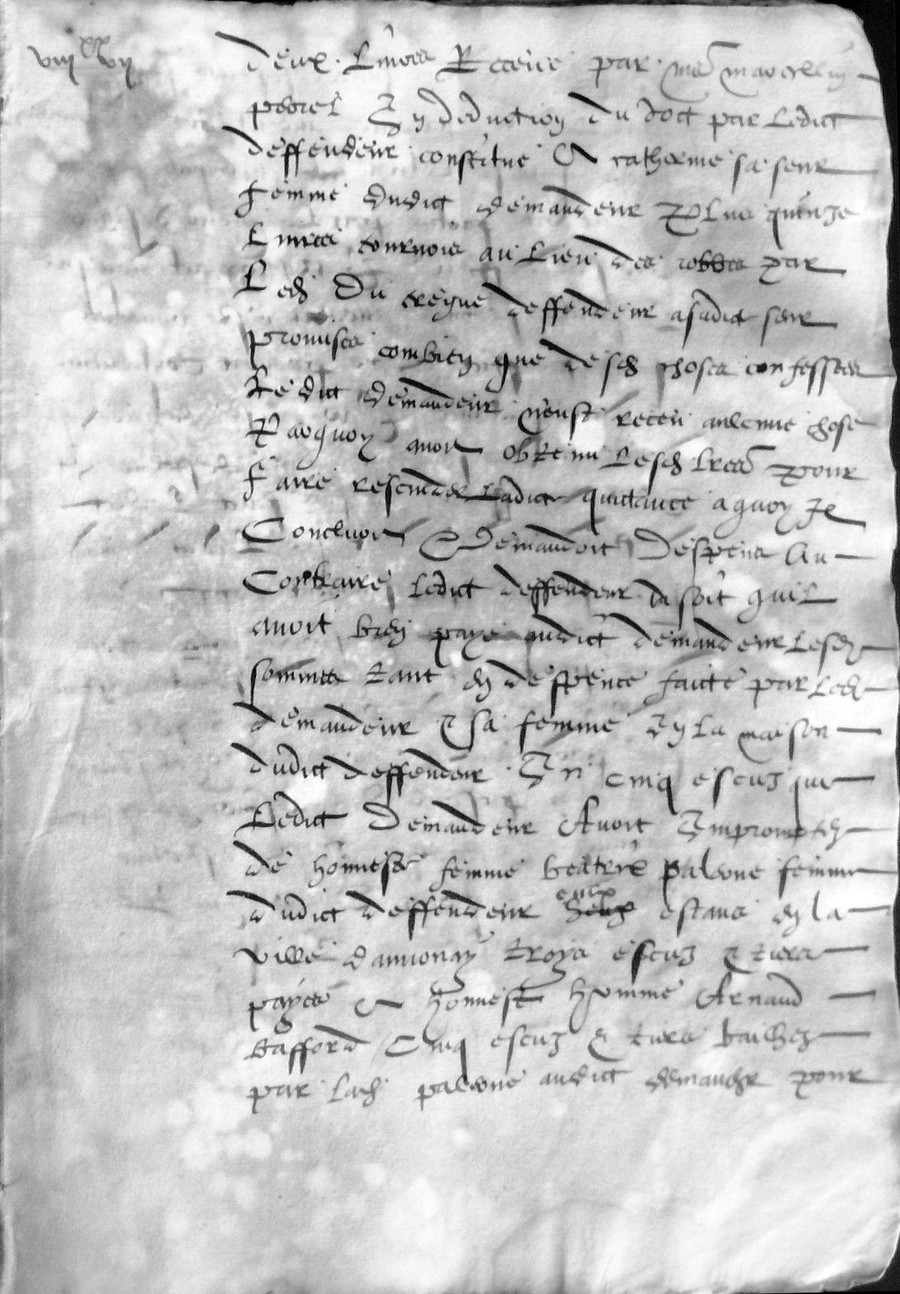 viii xx vii
deux livres Receue par me marcellin
peorel En deduction du dot par Ledict
deffendeur constitue A catherine sa seur
femme dudict demandeur Plus quinze
Livres tournois au Lieu des robbes par
Led du creyne deffendeur a sadict seur
promises combien que desd choses confesses
Ledict demandeur n'eust receu aulcune chose
Parquoy avoir obtenu Lesd lres pour
faire rescinder Ladict quictance a quoy Il
Concluoit Et demandoit despens Au
Contraire Ledict deffendeur disoit quil
avoit bien paye audict demandeur Lesd
sommes tant en despence faicte par Led
demandeur & sa femme En La maison
dudict deffendeur En cinq escuz que
Ledict Demandeur Avoit Empromptez
de honneste femme beatrix paleone femme
dudict deffendeur eulx estans en la
ville dannonay troys escuz & tiers
payes A honneste homme Arnaud
bafford Cinq escuz & tiers bailhez
par lad paleone audict demandeur pour